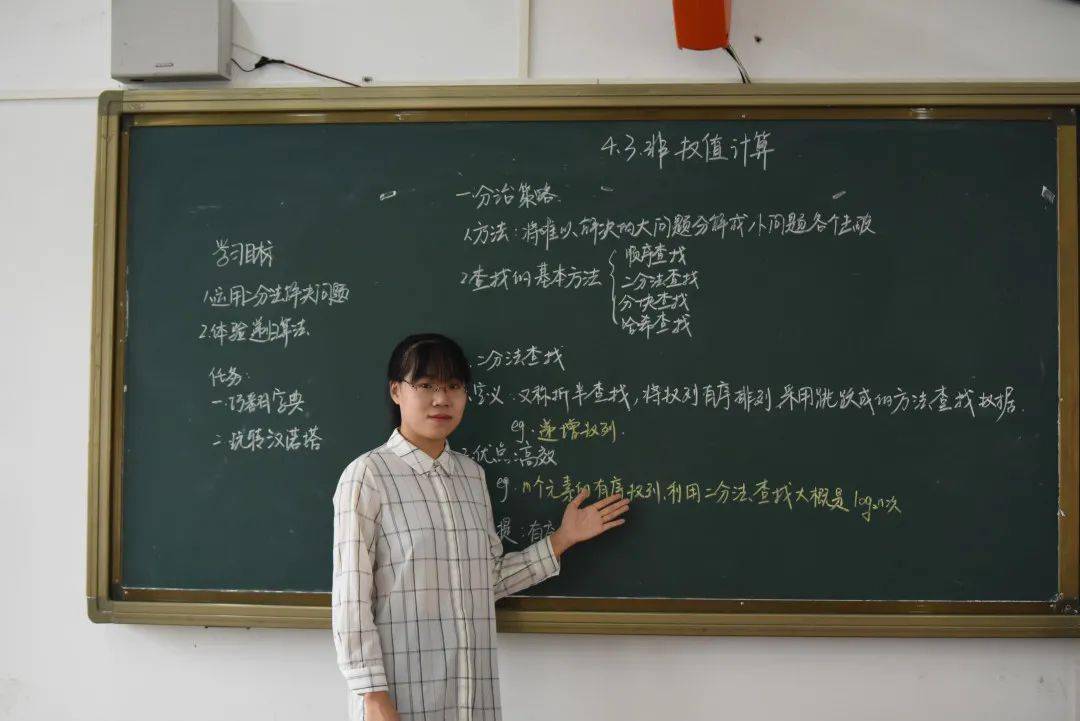 4.3.非数值计算
学习目标
1.运用二分法解决问题
2.体验递归算法
任务:
一.巧翻字典
二.玩转汉诺塔
一.分治策略
1.方法:将难以解决的大问题分解成小问题各个击破
2.查找的基本方法
顺序查找
二分法查找
分块查找
哈希查找
二分法查找
定义:又称折半查找,将数列有序排列,采用跳跃式的方法查找数据.
eg.递增数列.
优点:高效
eg.n个元素的有序数列,利用二分法查找大概是log₂n次
提:有